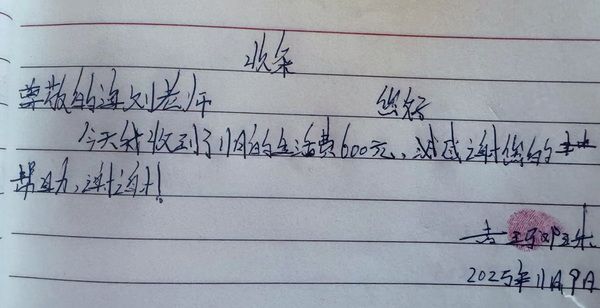 收条
尊敬的连刘老师 您好
今天我收到了11月的生活费600元，诚感谢您的
帮助，谢谢！
2025年11月9日